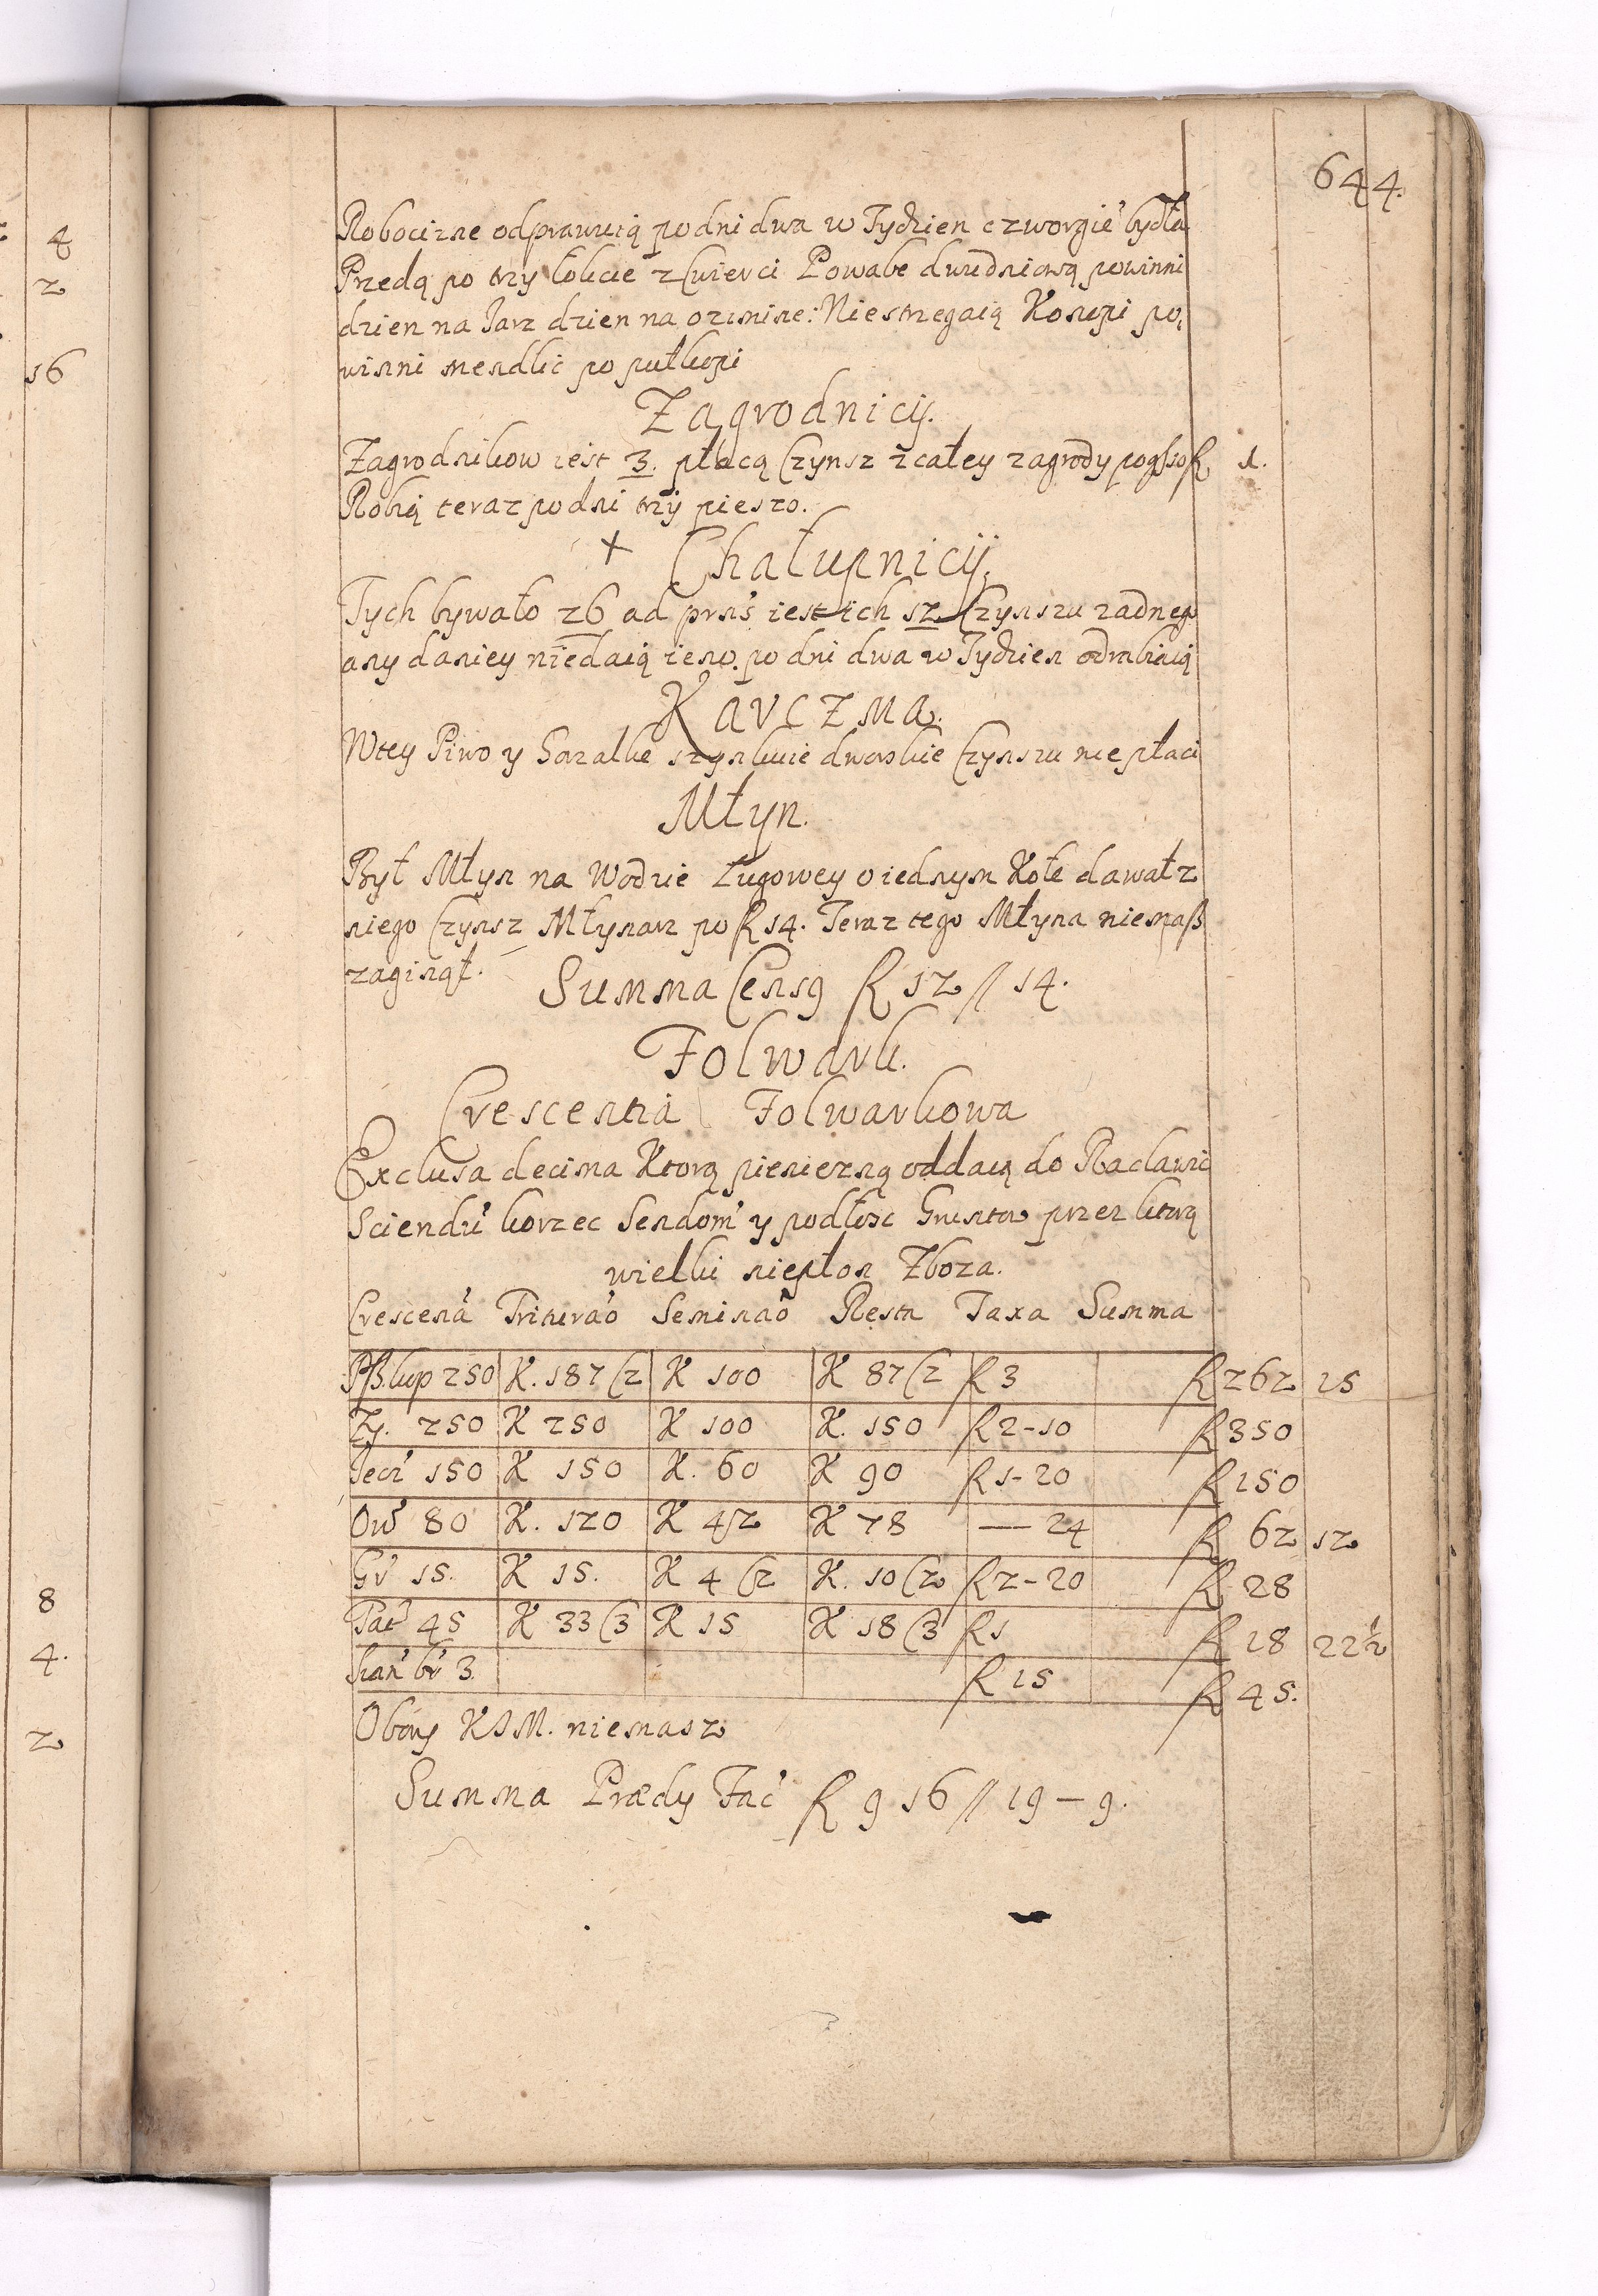 4
2
16
8
4.
2
644.
Robocizne odprawuią po dni dwa w Tydzien czworgie' bydła
Przedą po trzy łokcie z Cwierci Powabe dwudniową powinni
dzien na Jarz dzien na ozimine: Niestrzegaią Konopi po,
winni mendlic po pułkopi
Zagrodnicij.
Zagrodnikow iest 3. płacą Czynsz z całey zagrody po gr 10 R 1.
Robią teraz po dni trzÿ pieszo.
+ Chałupnicij.
Tych bywało 26 ad prns iest ich 12 Czynszu zadnego
any daniey niedaią ieno. po dni dwa w Tydzien odrabiaią
Karczma.
Wtey Piwo y Gorzalke szynkuie dworskie Czynszu nie płaci
Młyn.
Był Młyn na Wodzie Ługowey o iednym Kole dawał z
niego Czynsz Młynarz po R 14. Teraz tego Młyna niemaß
zaginął. Summa Cens9 R 12 // 14.
Folwark.
Crescentia Folwarkowa
Exclusa decima Ktorą pienięzną oddaią do Racławic
Sciendu' korzec Sendom' y podłosc Gruntow przez ktorą
wielki niepłon Zboza.
Crescen'a Tritura'o Semina'o Resta Taxa Summa
Pß. kop 250 K. 187 (2 K 100 K 87 (2 R 3 R 262 15
Zy. 250 K 250 K 100 K. 150 R 2-10 R 350
Iecz' 150 K 150 K. 60 K 90 R 1-20 R 150
Ow' 80 K. 120 K 42 K 78 — 24 R 62 12
Gr' 15. K 15. K 4 (2 K. 10 (2 R 2-20 R 28
Tat' 45 K 33 (3 K 15 K 18 (3 R 1 R 18 22 1/2
Sian' br' 3. R 15 R 45.
Obory KIM. niemasz
Summa Prædy Fac' R 916 // 19 – 9.